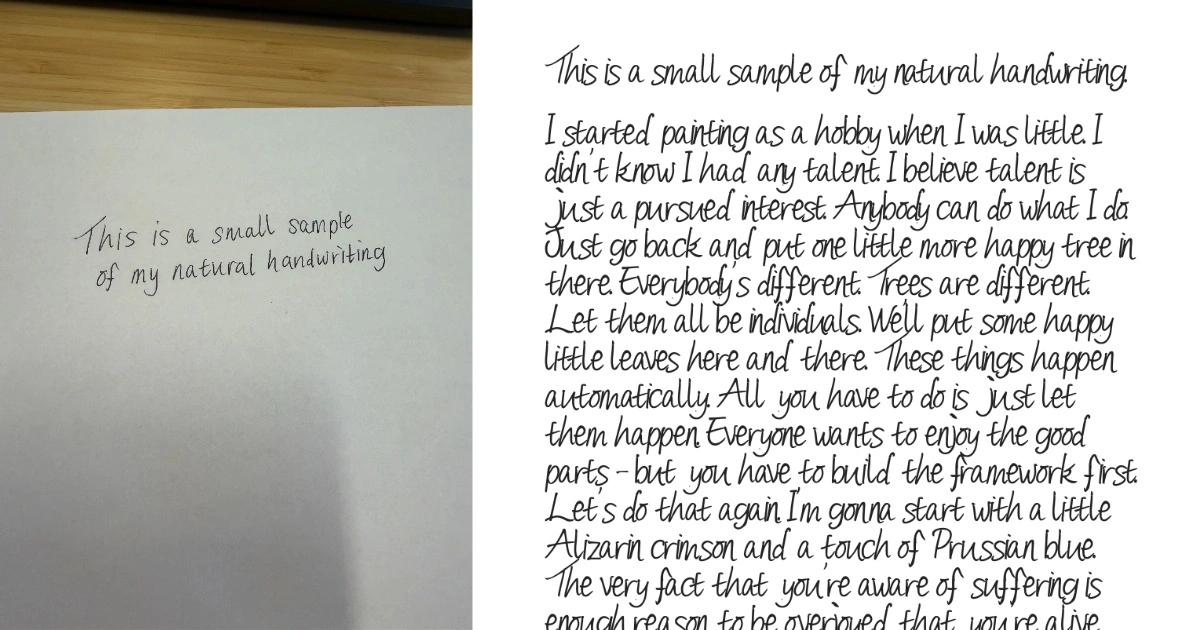 This is a small sample
of my natural handwriting
This is a small sample of my natural handwriting.
I started painting as a hobby when I was little. I
didn't know I had any talent. I believe talent is
just a pursued interest. Anybody can do what I do.
Just go back and put one little more happy tree in
there. Everybody's different. Trees are different.
Let them all be individuals. We'll put some happy
little leaves here and there. These things happen
automatically. All you have to do is just let
them happen. Everyone wants to enjoy the good
parts - but you have to build the framework first.
Let's do that again. I'm gonna start with a little
Alizarin crimson and a touch of Prussian blue.
The very fact that you're aware of suffering is
enough reason to be overjoyed that you're alive